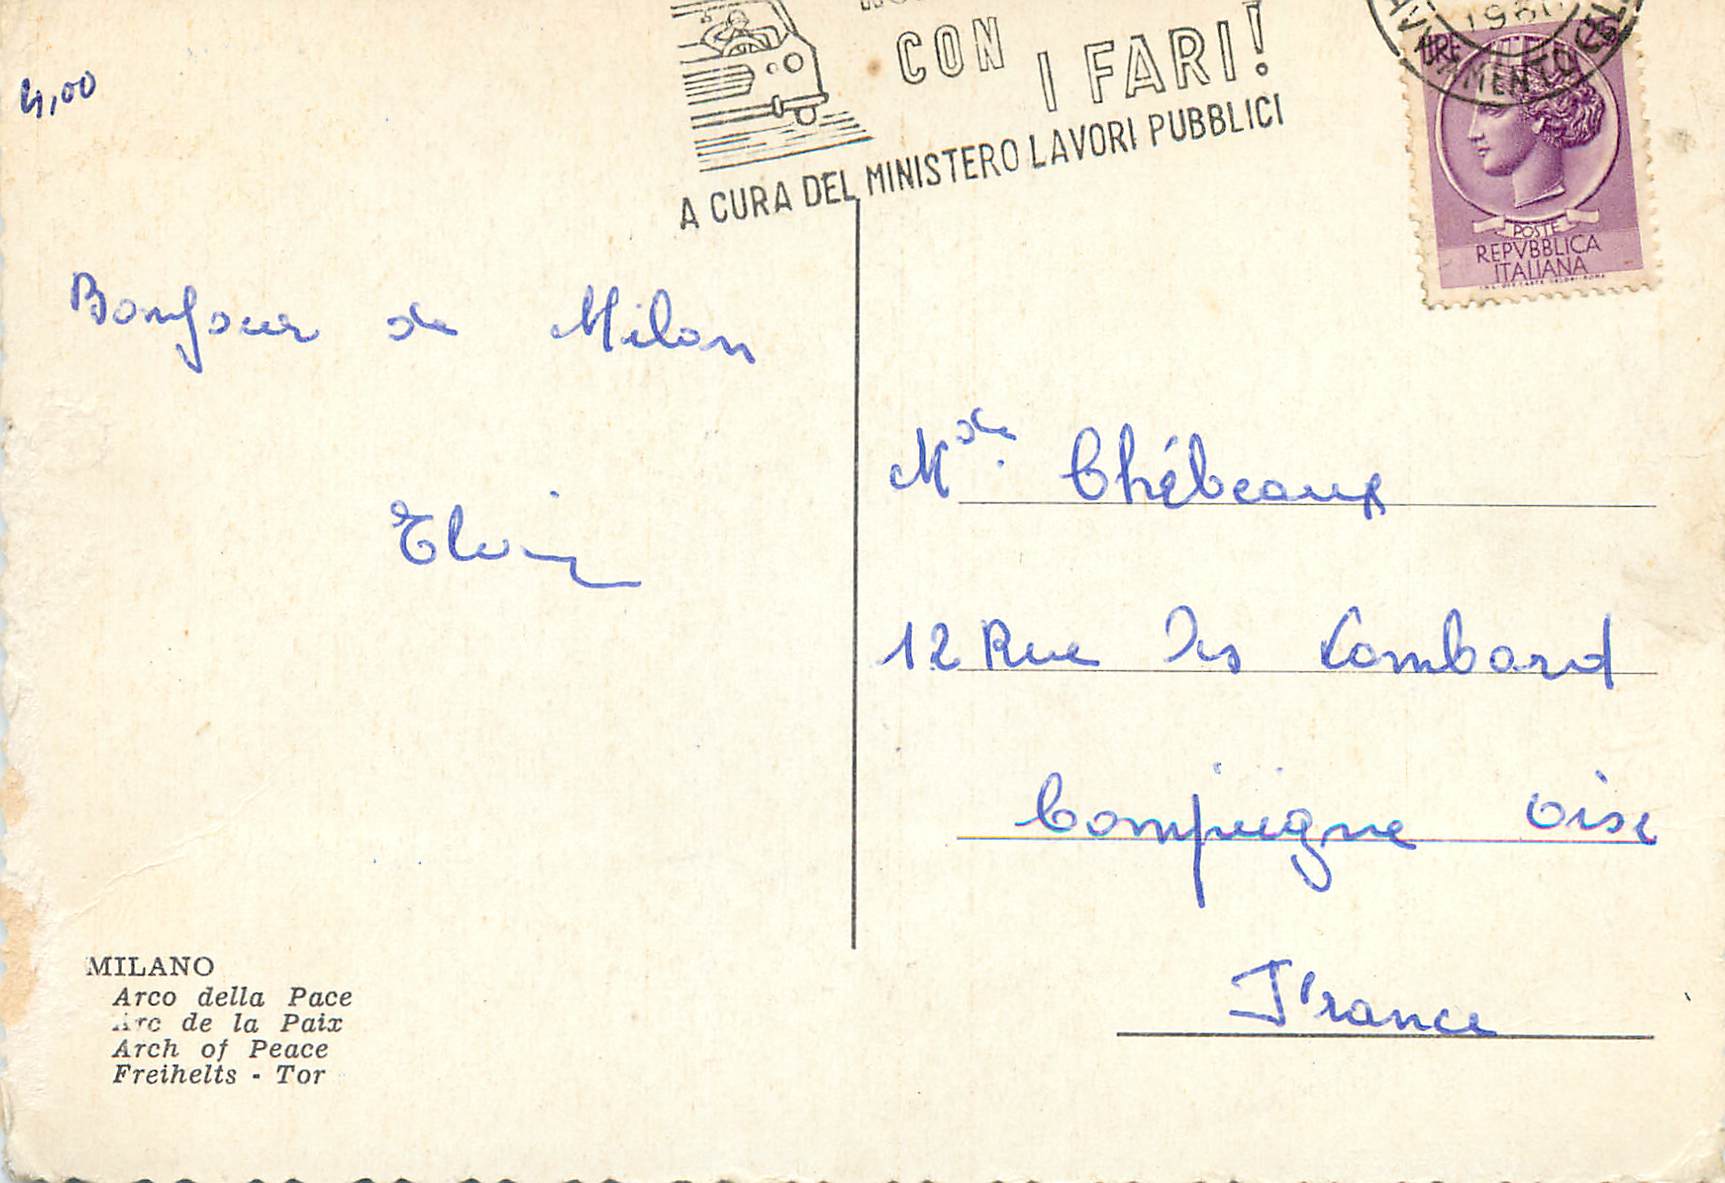 4,00
CON
I FARI!
A CURA DEL MINISTERO LAVORI PUBBLICI
1960
LIRE
POSTE
REPVBBLICA
ITALIANA
Bonjour de Milan
Mde Chébeaux
12 Rue des Lombard
Compiegne Oise
France
MILANO
Arco della Pace
Arc de la Paix
Arch of Peace
Freihelts - Tor